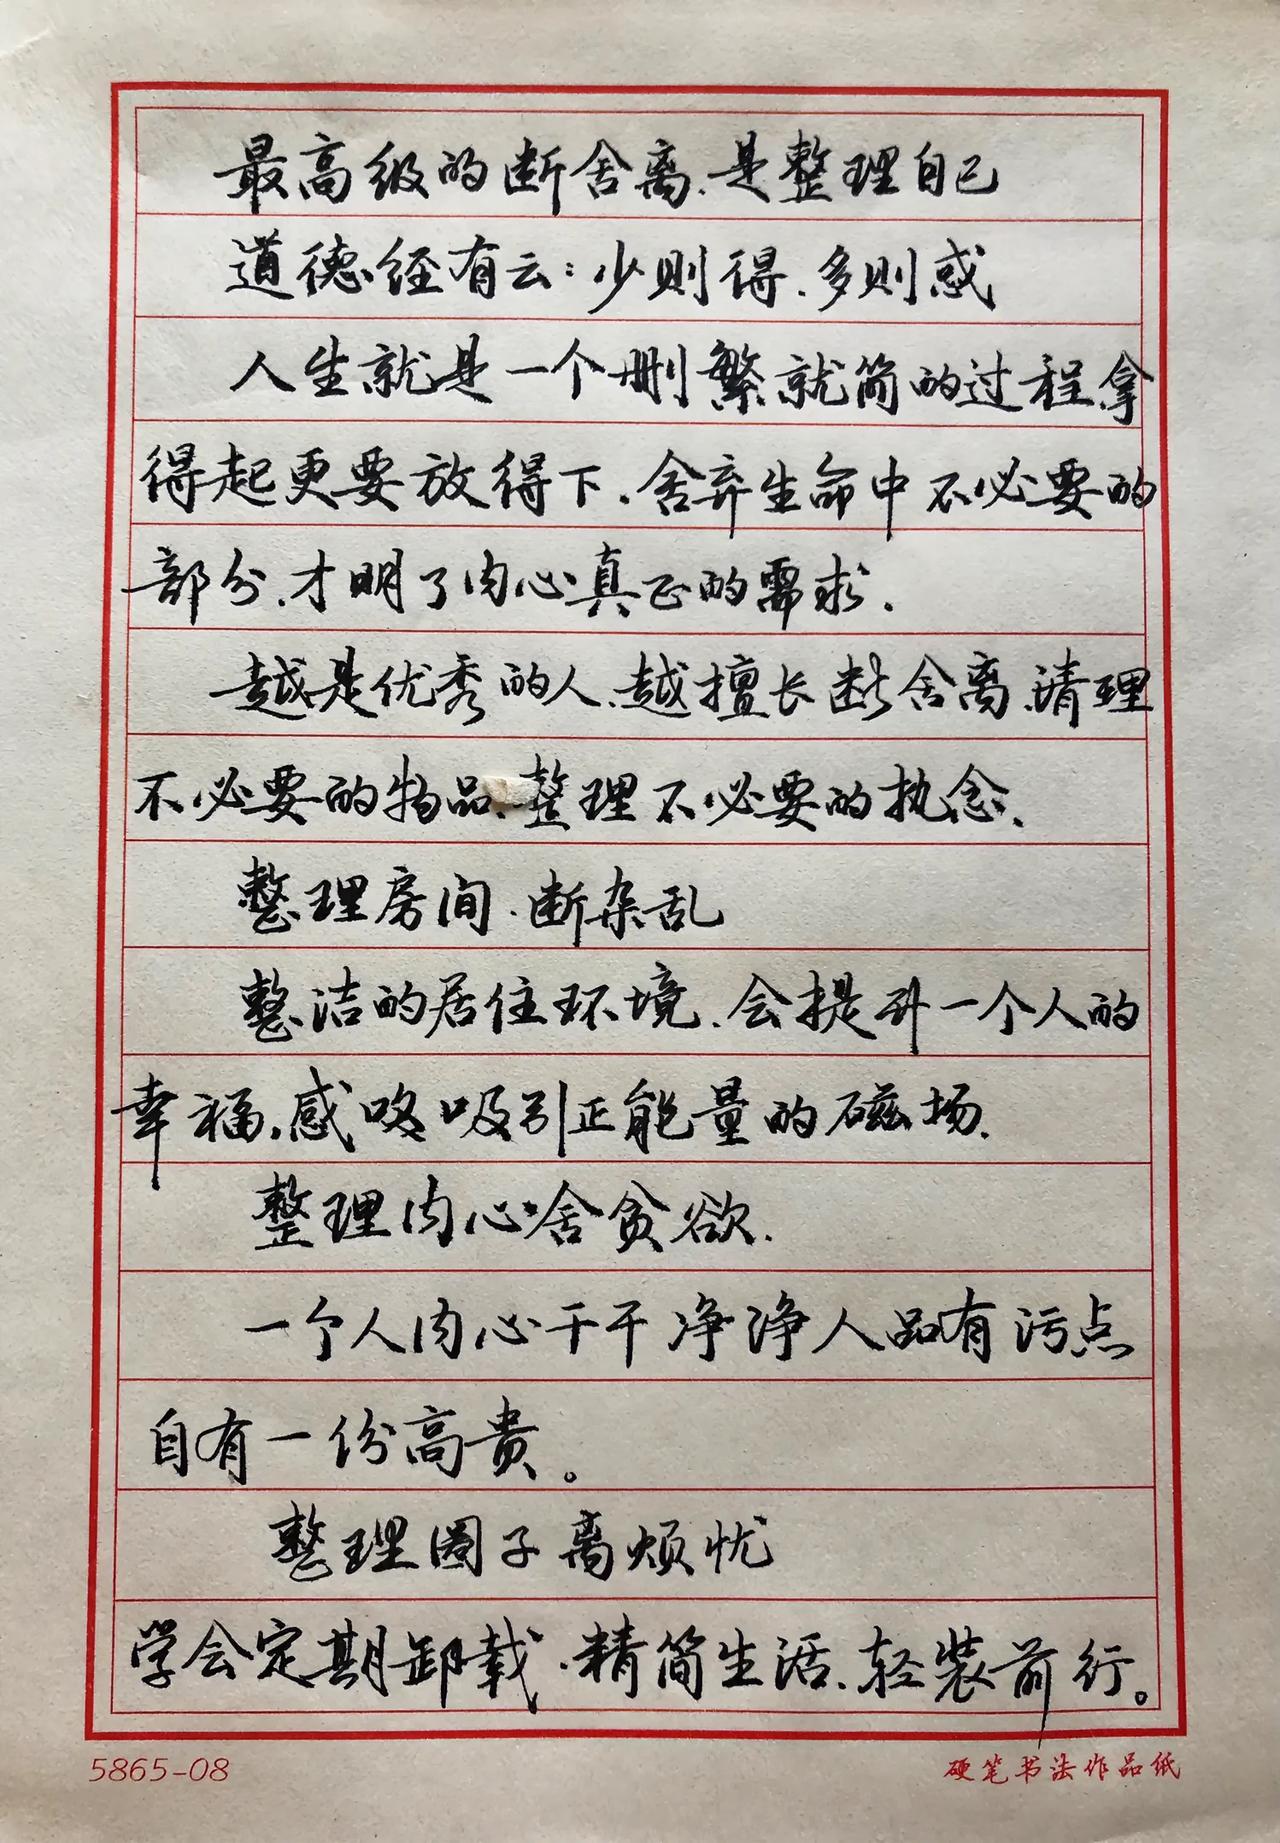 最高级的断舍离、是整理自己
道德经有云：少则得、多则惑
人生就是一个删繁就简的过程拿
得起更要放得下、舍弃生命中不必要的
部分、才明了内心真正的需求、
越是优秀的人、越擅长断舍离、清理
不必要的物品、整理不必要的执念、
整理房间、断杂乱
整洁的居住环境、会提升一个人的
幸福、感咚吸引正能量的磁场、
整理内心舍贪欲、
一个人内心干干净净人品有污点
自有一份高贵。
整理圈子离烦忧
学会定期卸载、精简生活、轻装前行。
5865-08
硬笔书法作品纸